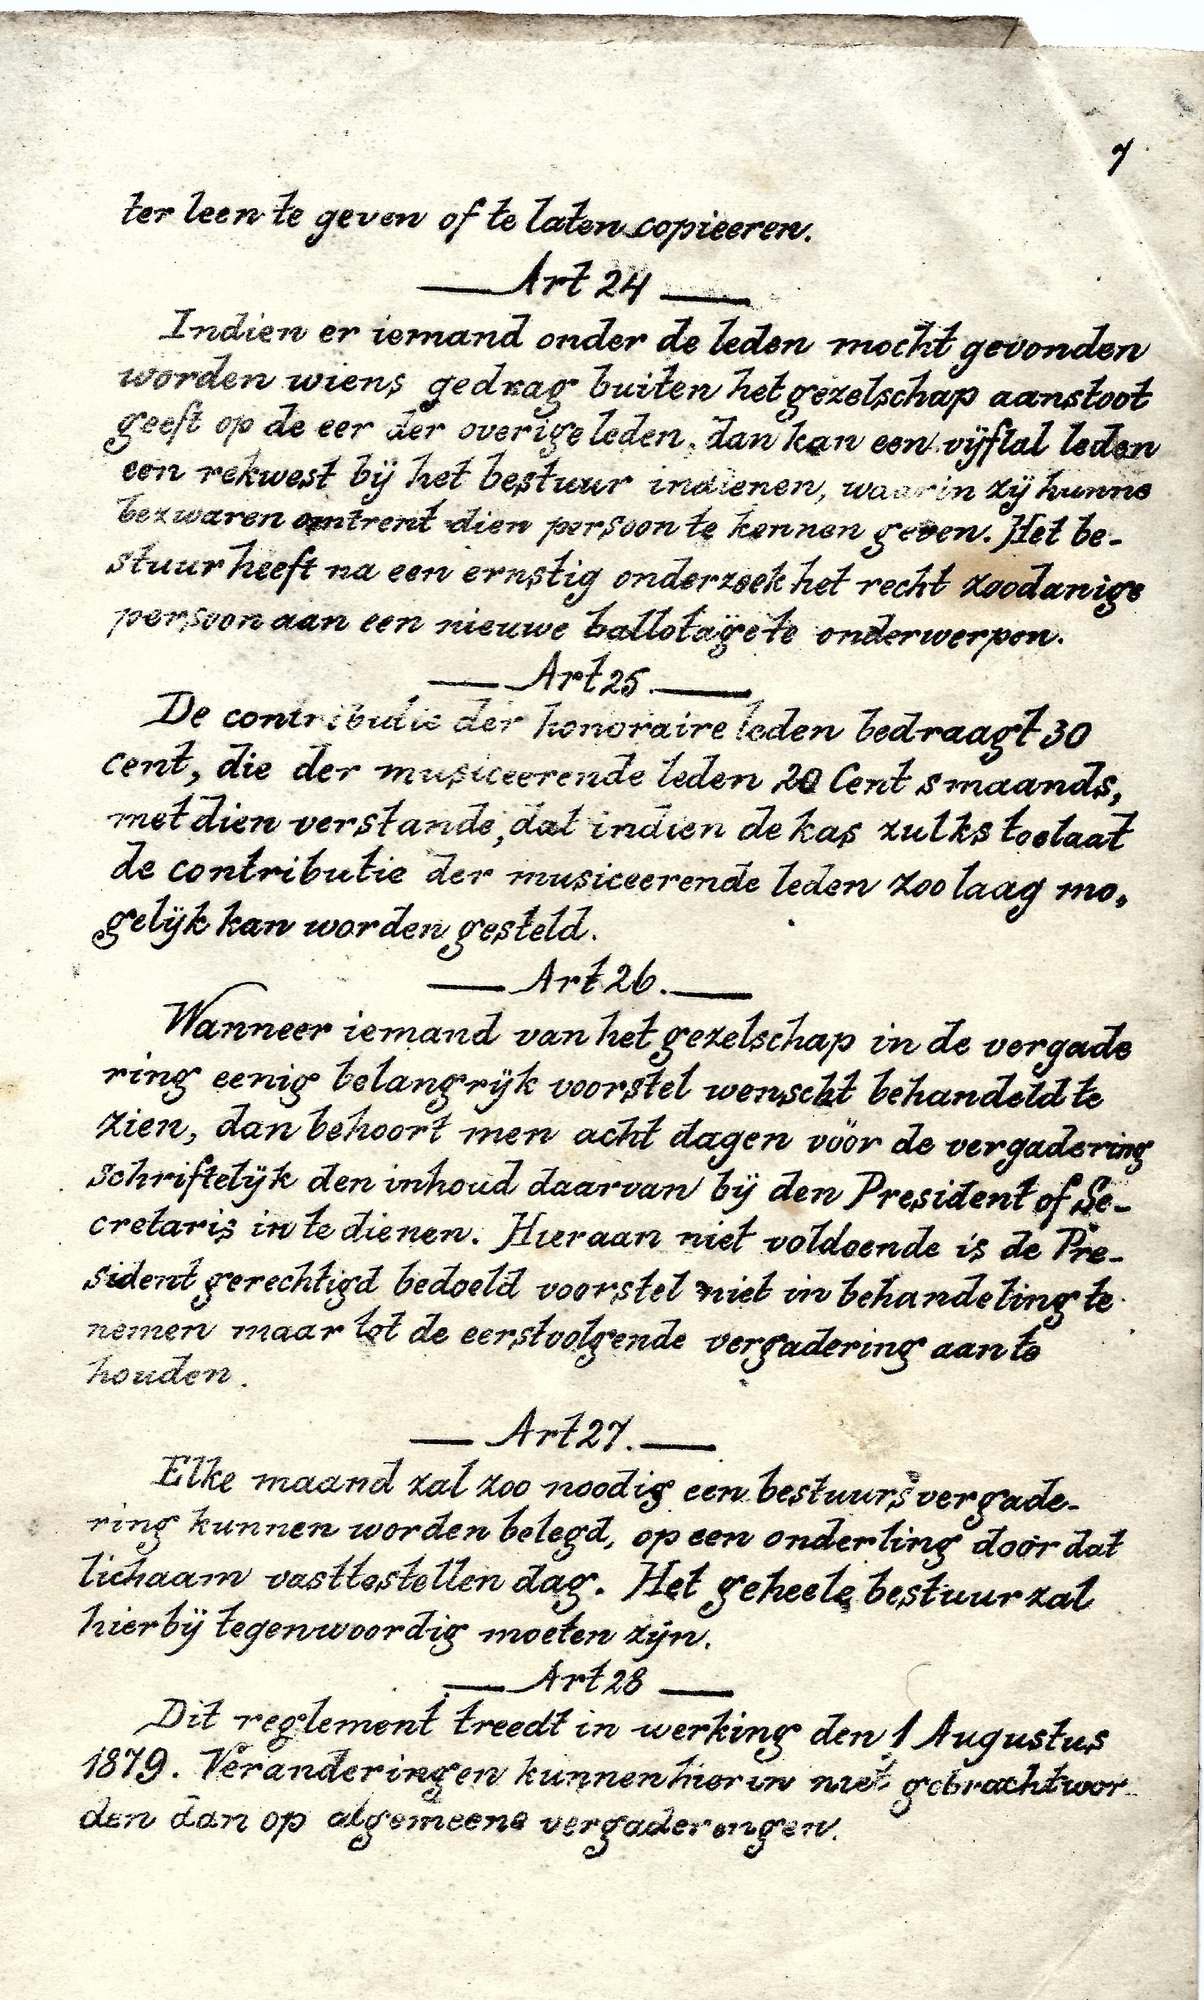 7
ter leen te geven of te laten copieeren.
Art 24
Indien er iemand onder de leden mocht gevonden
worden wiens gedrag buiten het gezelschap aanstoot
geeft op de eer der overige leden, dan kan een vijftal leden
een rekwest bij het bestuur indienen, waarin zij hunne
bezwaren omtrent dien persoon te kennen geven. Het be-
stuur heeft na een ernstig onderzoek het recht zoodanige
persoon aan een nieuwe ballotage te onderwerpen.
Art 25
De contributie der honoraire leden bedraagt 30
cent, die der musiceerende leden 20 Cent smaands,
met dien verstande, dat indien de kas zulks toelaat
de contributie der musiceerende leden zoo laag mo-
gelijk kan worden gesteld.
Art 26.
Wanneer iemand van het gezelschap in de vergade
ring eenig belangrijk voorstel wenscht behandeld te
zien, dan behoort men acht dagen vóór de vergadering
schriftelijk den inhoud daarvan bij den President of Se-
cretaris in te dienen. Hieraan niet voldoende is de Pre-
sident gerechtigd bedoeld voorstel niet in behandeling te
nemen maar tot de eerstvolgende vergadering aan te
houden.
Art 27.
Elke maand zal zoo noodig een bestuursvergade-
ring kunnen worden belegd, op een onderling door dat
lichaam vasttestellen dag. Het geheele bestuur zal
hierbij tegenwoordig moeten zijn.
Art 28
Dit reglement treedt in werking den 1 Augustus
1879. Veranderingen kunnen hierin niet gebracht wor-
den dan op algemeene vergaderengen.